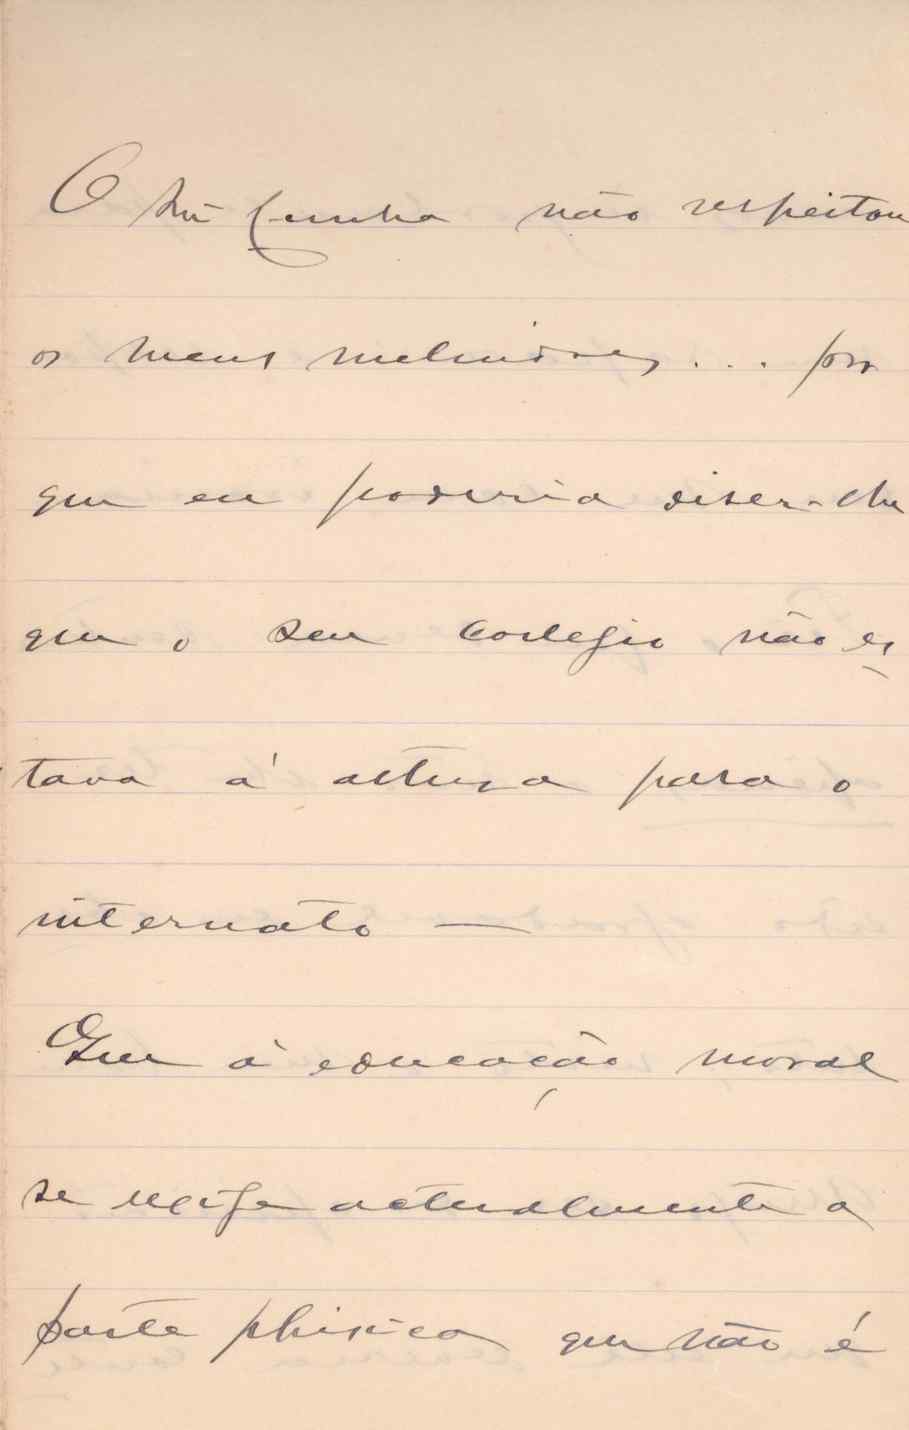 O Snr Cunha não respeitou
os meus melindres... por
que eu poderia diser-lhe
que o seu collegio não es
tava á altura para o
internato —
Que á educação moral
se exige actualmente a
parte phisica que não é